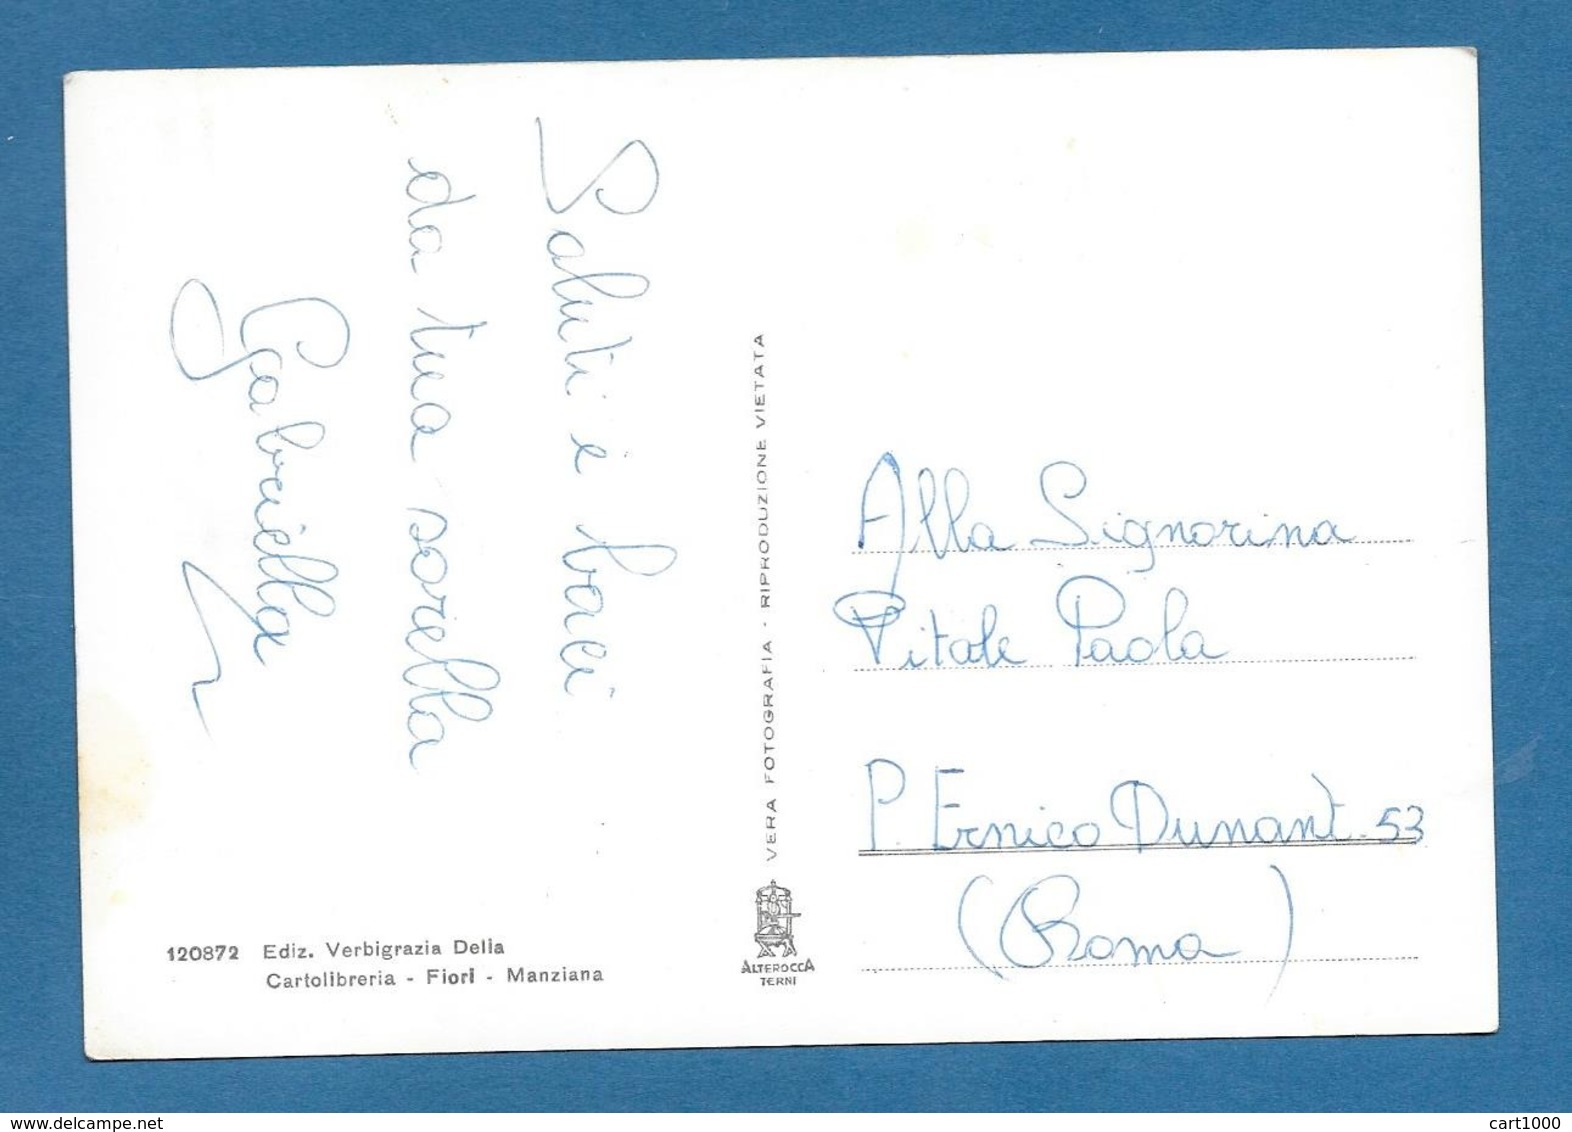 Saluti e baci
da tua sorella
Gabriella
VERA FOTOGRAFIA - RIPRODUZIONE VIETATA
Alla Signorina
Vitale Paola
P. Ernico Dunant 53
(Roma)
120872 Ediz. Verbigrazia Delia
Cartolibreria - Fiori - Manziana
ALTEROCCA
TERNI
cart1000